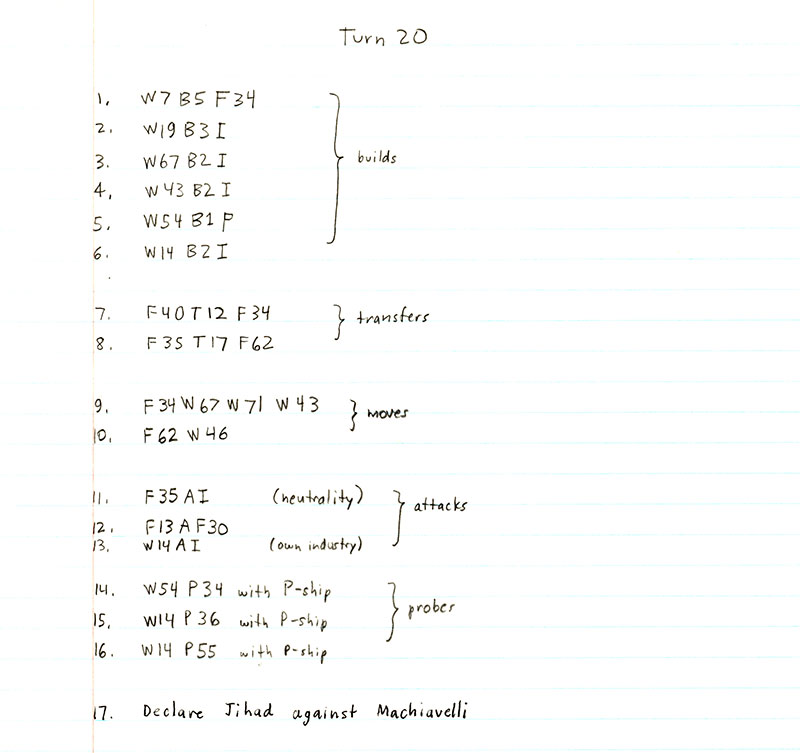 Turn 20
1. W7 B5 F34
2. W19 B3 I
3. W67 B2 I
builds
4. W43 B2 I
5. W54 B1 P
6. W14 B2 I
7. F40 T12 F34
transfers
8. F35 T17 F62
9. F34 W67 W71 W43
moves
10. F62 W46
11. F35 A I (neutrality)
attacks
12. F13 A F30
13. W14 A I (own industry)
14. W54 P34 with P-ship
probes
15. W14 P36 with P-ship
16. W14 P55 with P-ship
17. Declare Jihad against Machiavelli